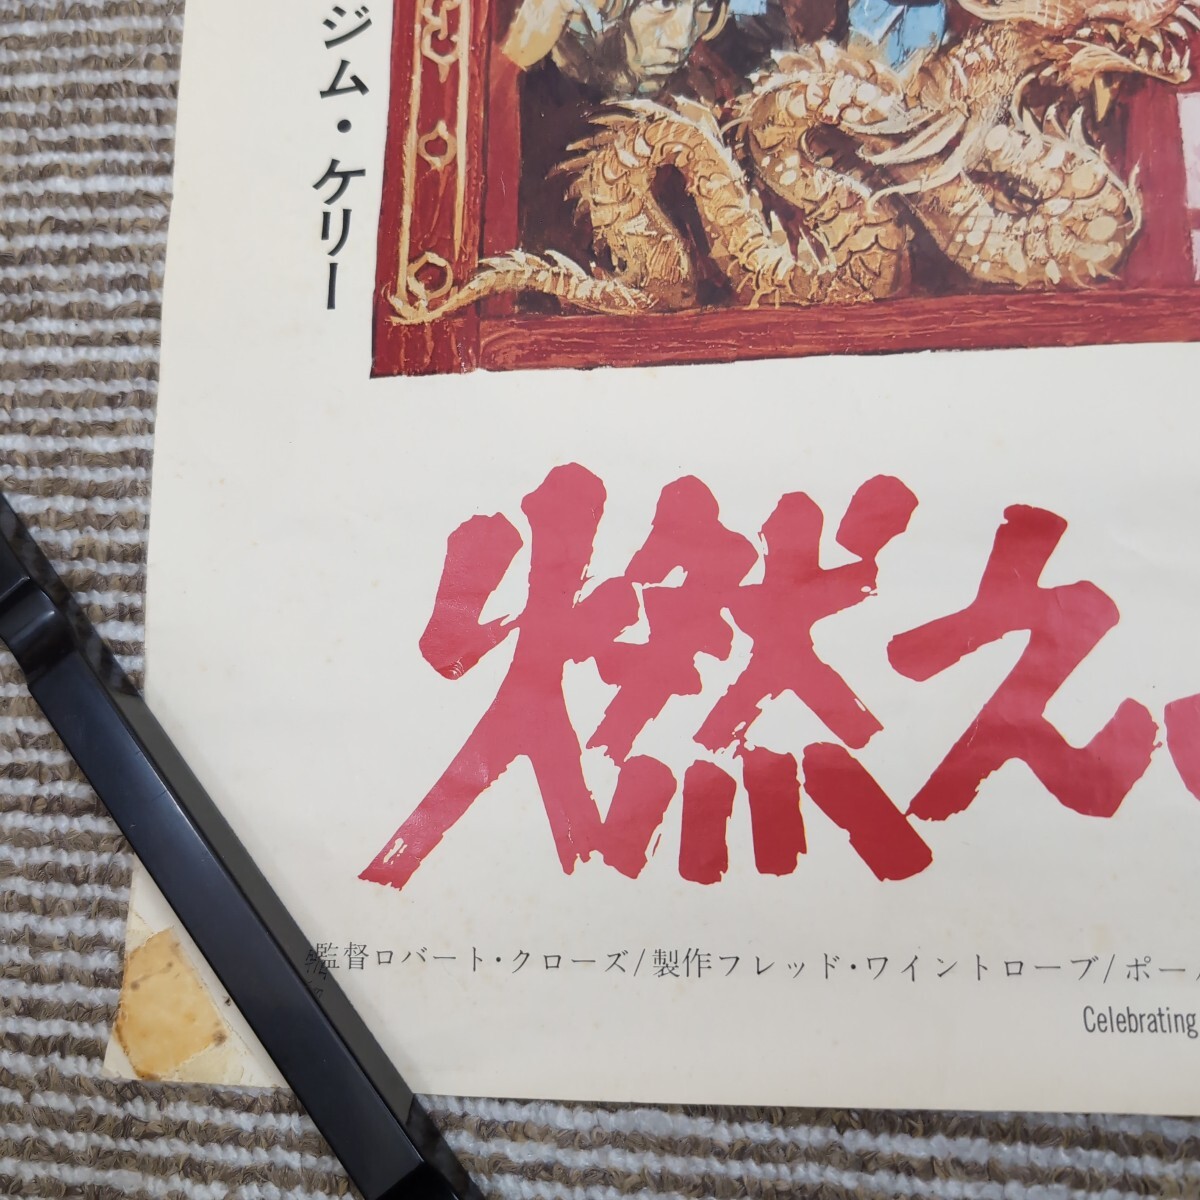 ジム・ケリー
燃え
監督ロバート・クローズ/製作フレッド・ワイントローブ/ポー
Celebrating